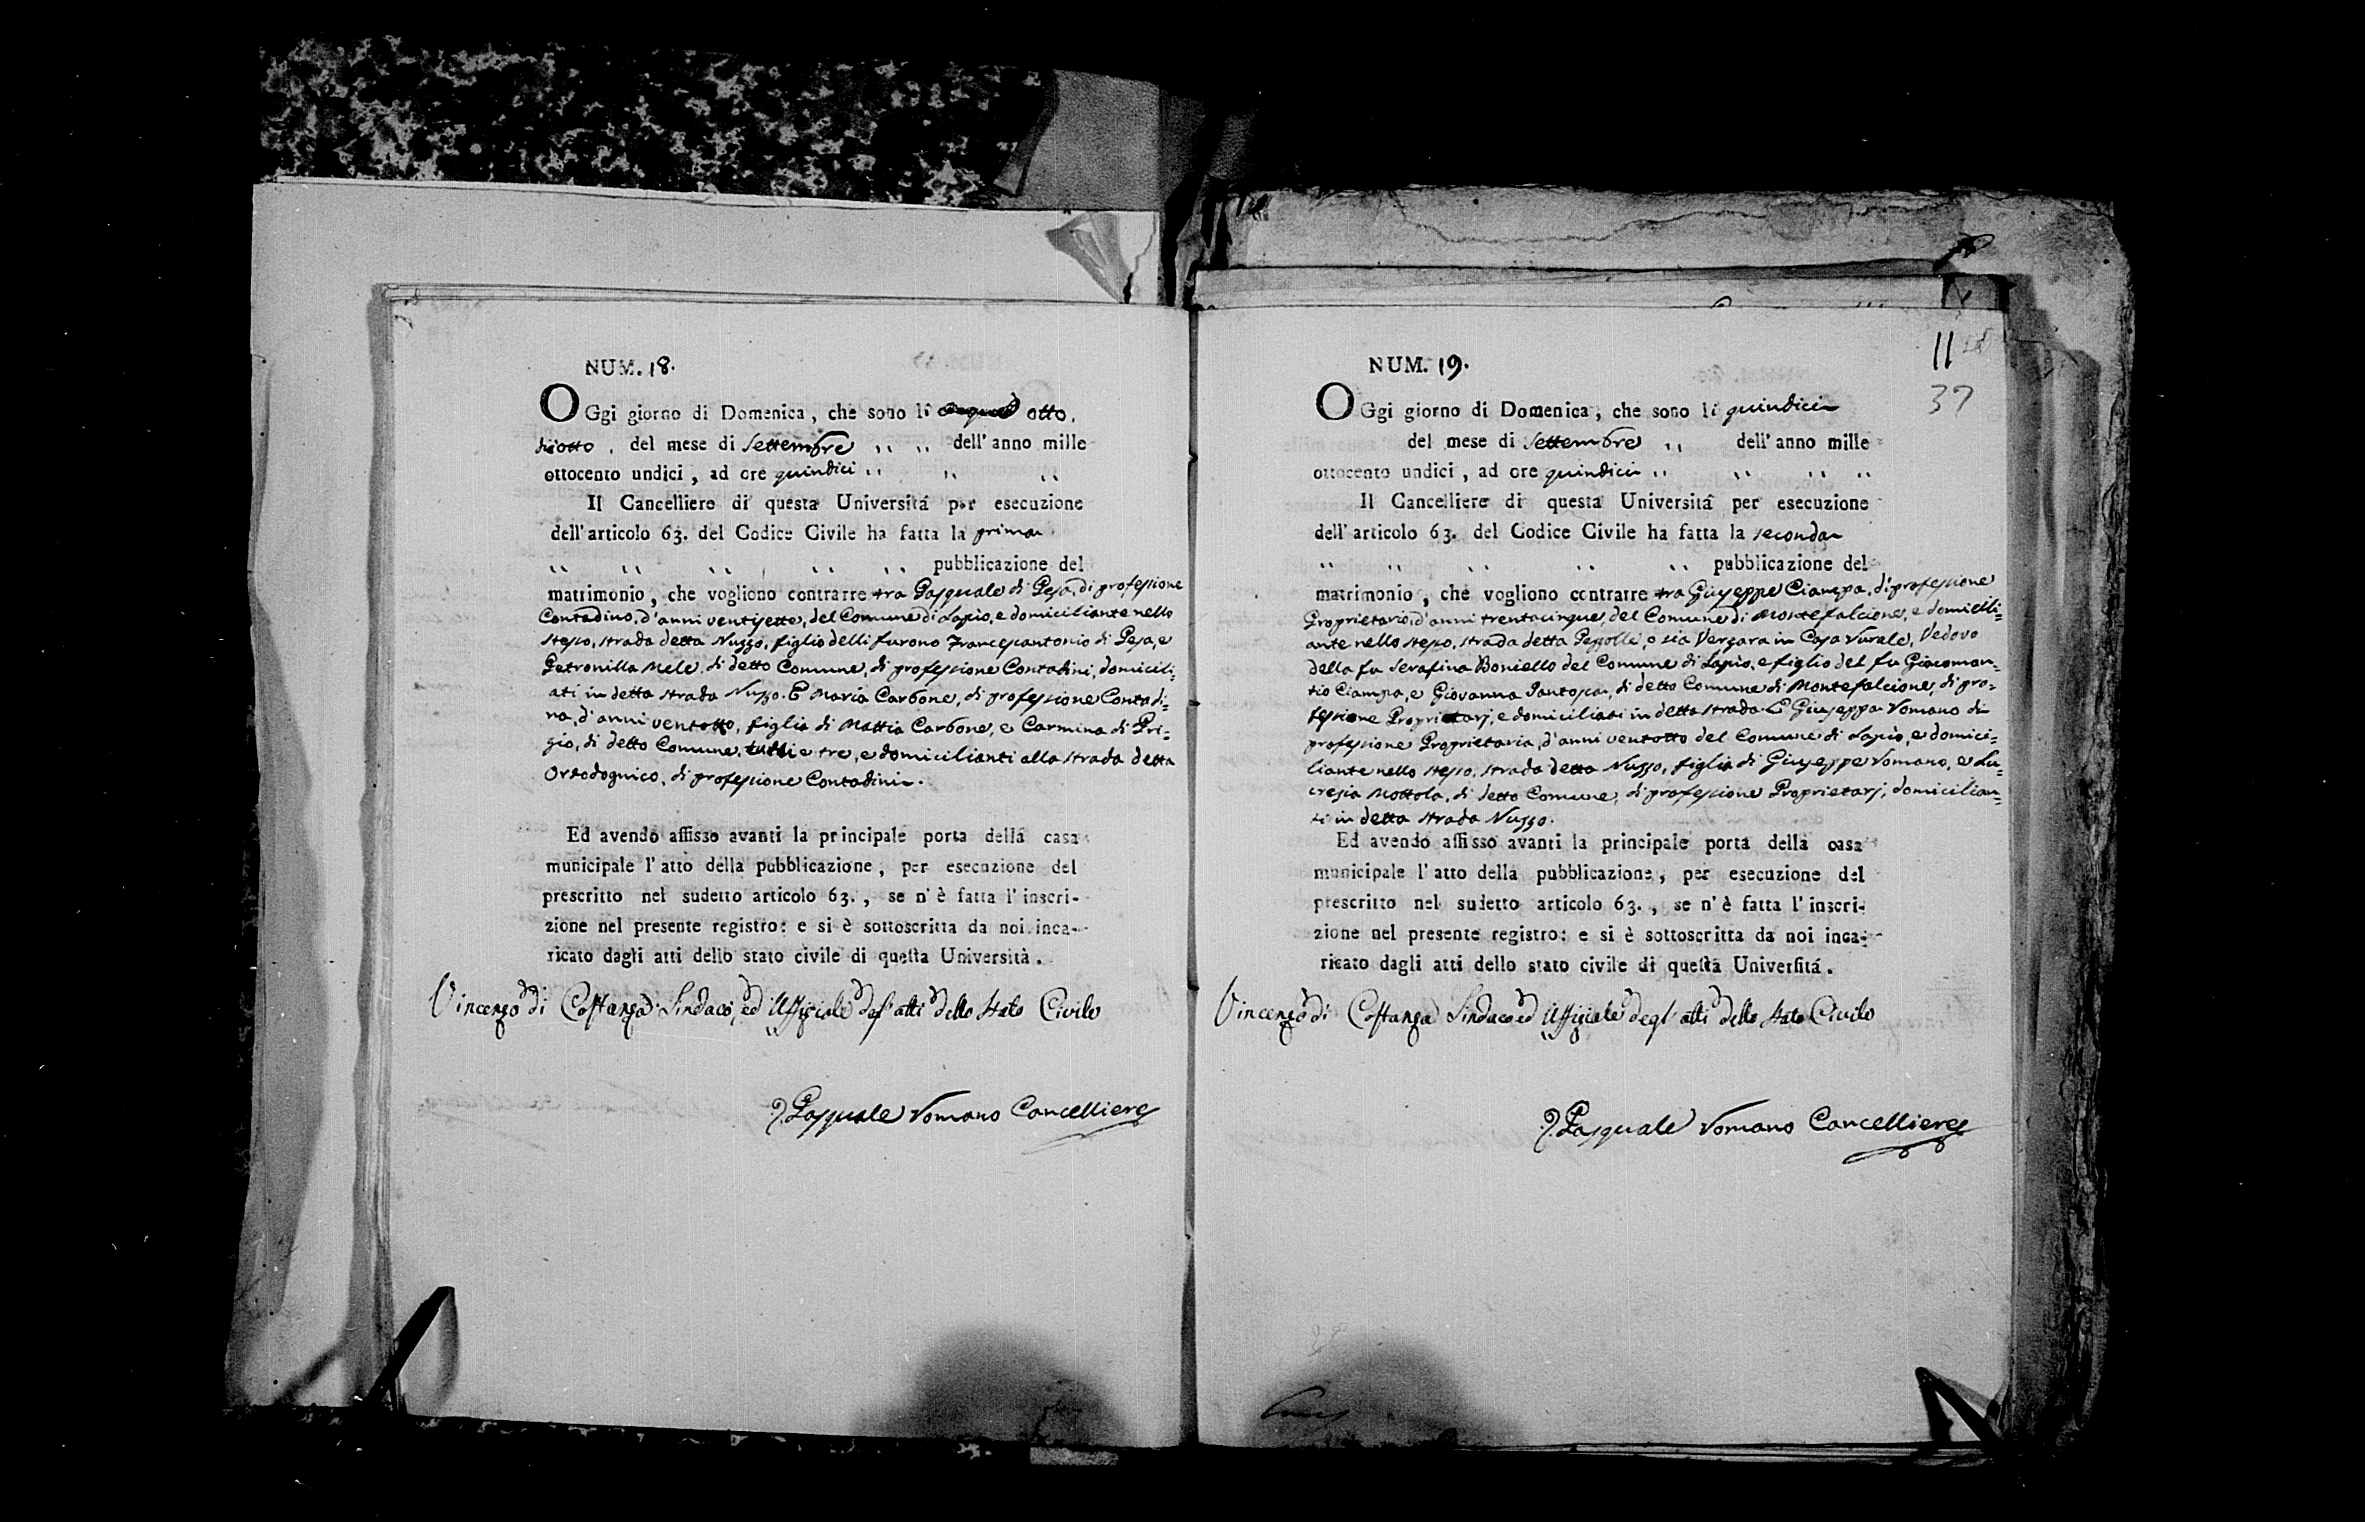 NUM. 18.
OGgi giorno di Domenica, che sono li otto,
diciotto, del mese di Settembre ,, ,, dell' anno mille
ottocento undici, ad ore quindici ,, ,, ,,
Il Cancelliere di questa Universitá per esecuzione
dell' articolo 63. del Codice Civile ha fatta la prima
,, ,, ,, ,, ,, pubblicazione del
matrimonio, che vogliono contrarre tra Pasquale di Pesa, di professione
Contadino, d'anni ventisette, del Comune di Lapio, e domiciliante nello
stesso, strada detta Nuzzo, figlio delli furono Francescantonio di Pesa, e
Petronilla Mele, di detto Comune, di professione Contadini, domicili=
ati in detta strada Nuzzo. E Maria Carbone, di professione Contadi=
na, d'anni ventotto, figlia di Mattia Carbone, e Carmina di Pri=
zio, di detto Comune, tutti e tre, e domicilianti alla strada detta
Ortodognico, di professione Contadini.
Ed avendo affisso avanti la principale porta della casa
municipale l' atto della pubblicazione, per esecuzione del
prescritto nel sudetto articolo 63., se n' è fatta l' inscri-
zione nel presente registro: e si è sottoscritta da noi inca-
ricato dagli atti dello stato civile di questa Università.
Vincenzo di Costanza Sindaco, ed Uffiziale degl' atti dello stato Civile
Pasquale Romano Cancelliere
NUM. 19.
11
37
OGgi giorno di Domenica, che sono li quindici
del mese di Settembre ,, dell' anno mille
ottocento undici, ad ore quindici ,, ,, ,, ,,
Il Cancelliere di questa Universitá per esecuzione
dell' articolo 63. del Codice Civile ha fatta la seconda
,, ,, ,, ,, ,, pubblicazione del
matrimonio, che vogliono contrarre tra Giuseppe Ciampa, di professione
Proprietario, d'anni trentacinque, del Comune di Montefalcione, e domicili=
ante nello stesso, strada detta Pezzolle, o sia Vergara in Casa Rurale, Vedovo
della fu Serafina Boniello del Comune di Lapio, e figlio del fu Giacoman=
tio Ciampa, e Giovanna Santosa, di detto Comune di Montefalcione, di pro=
fessione Proprietarj, e domiciliati in detta strada. E Giuseppa Romano di
professione Proprietaria, d'anni ventotto del Comune di Lapio, e domici=
liante nello stesso, strada detta Nuzzo, figlia di Giuseppe Romano, e Lu=
crezia Mottola, di detto Comune, di professione Proprietarj, domicilian=
ti in detta strada Nuzzo.
Ed avendo affisso avanti la principale porta della casa
municipale l' atto della pubblicazione, per esecuzione del
prescritto nel sudetto articolo 63., se n' è fatta l' inscri-
zione nel presente registro: e si è sottoscritta da noi inca-
ricato dagli atti dello stato civile di questa Universitá.
Vincenzo di Costanza Sindaco ed Uffiziale degl' atti dello stato Civile
Pasquale Romano Cancelliere